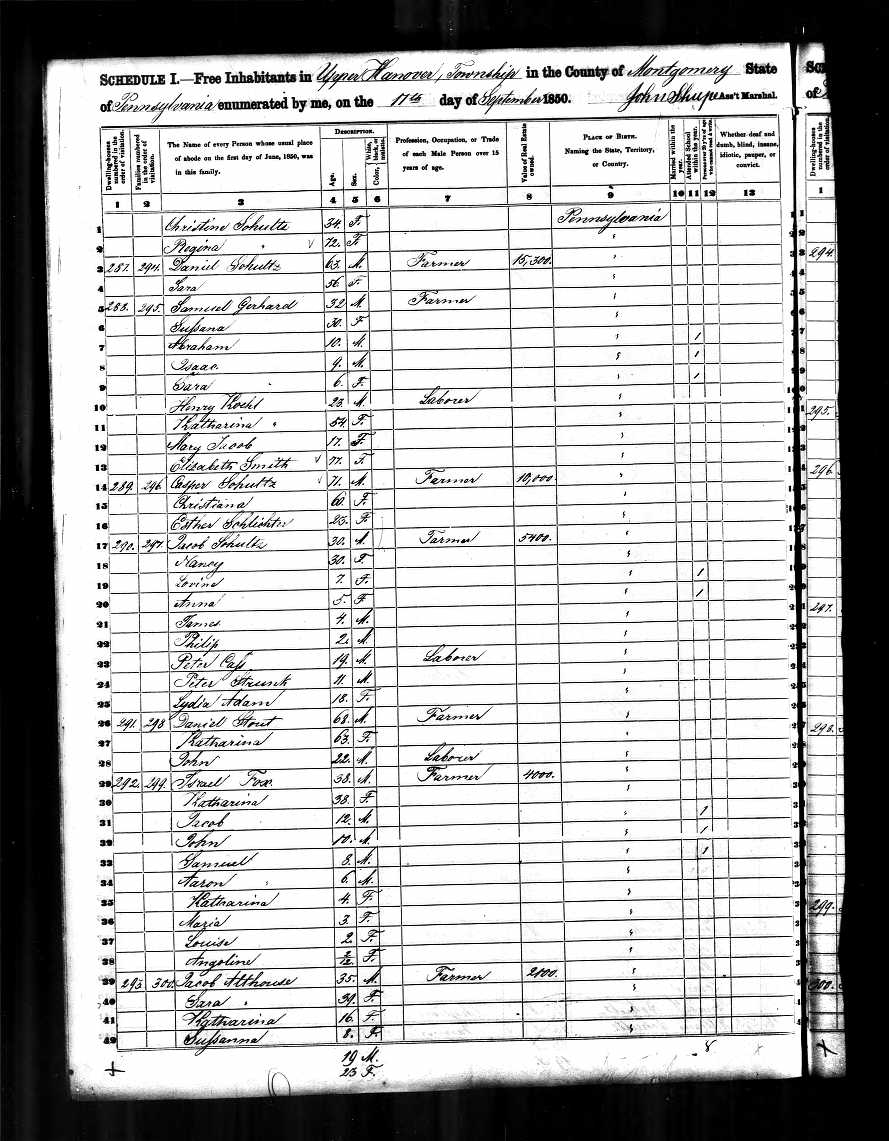 SCHEDULE I.—Free Inhabitants in Upper Hanover, Township in the County of Montgomery State
of Pennsylvania enumerated by me, on the 17th day of September 1850. John Shupe Ass't Marshal.
Dwelling-houses numbered in the order of visitation.
Families numbered in the order of visitation.
The Name of every Person whose usual place of abode on the first day of June, 1850, was in this family.
DESCRIPTION.
Age.
Sex.
Color, White, black, or mulatto.
Profession, Occupation, or Trade of each Male Person over 15 years of age.
Value of Real Estate owned.
PLACE OF BIRTH. Naming the State, Territory, or Country.
Married within the year.
Attended School within the year.
Whether deaf and dumb, blind, insane, idiotic, pauper, or convict.
1 2 3 4 5 6 7 8 9 10 11 12 13
1 Christine Schultz 34. F. Pennsylvania
2 Regina " 72. F "
3 287. 294. Daniel Schultz 63. M. Farmer 15,300. "
4 Sara 56. F "
5 288. 295. Samuel Gerhard 32. M. Farmer "
6 Sussana 30. F "
7 Abraham 10. M. " 1
8 Isaac 9. M. " 1
9 Sara 6. F. " 1
10 Henry Koehl 23. M. Laborer "
11 Katharina " 54. F. "
12 Mary Jacob 17. F. "
13 Elizabeth Smith 77. F. "
14 289. 296. Casper Schultz 71. M. Farmer 10,000. "
15 Christiana 60. F. "
16 Esther Schlichter 23. F. "
17 290. 297. Jacob Schultz 30. M. Farmer 5400. "
18 Nancy 30. F. "
19 Lovine 7. F. " 1
20 Anna 5. F " 1
21 James 4. M. "
22 Philip 2. M. "
23 Peter 19. M. Laborer "
24 Peter Strunk 11. M "
25 Lydia Adam 18. F. "
26 291. 298 Daniel Stout 68. M. Farmer "
27 Katharina 63. F. "
28 John 22. M. Laborer "
29 292. 299. Israel Fox. 38. M. Farmer 4000. "
30 Katharina 38. F. "
31 Jacob 12. M. " 1
32 John 10. M. " 1
33 Samuel 8. M. " 1
34 Aaron " 6. M. "
35 Katharina 4. F. "
36 Maria 3. F. "
37 Louise 2. F. "
38 Angoline 2/12. F. "
39 293. 300. Jacob Althouse 35. M. Farmer 2100. "
40 Sara " 39. F. "
41 Katharina 16. F. "
42 Sussanna 8. F. "
19 M.
23 F.
8
SCH
of
1
294.
295.
296.
297.
298.
299.
300.